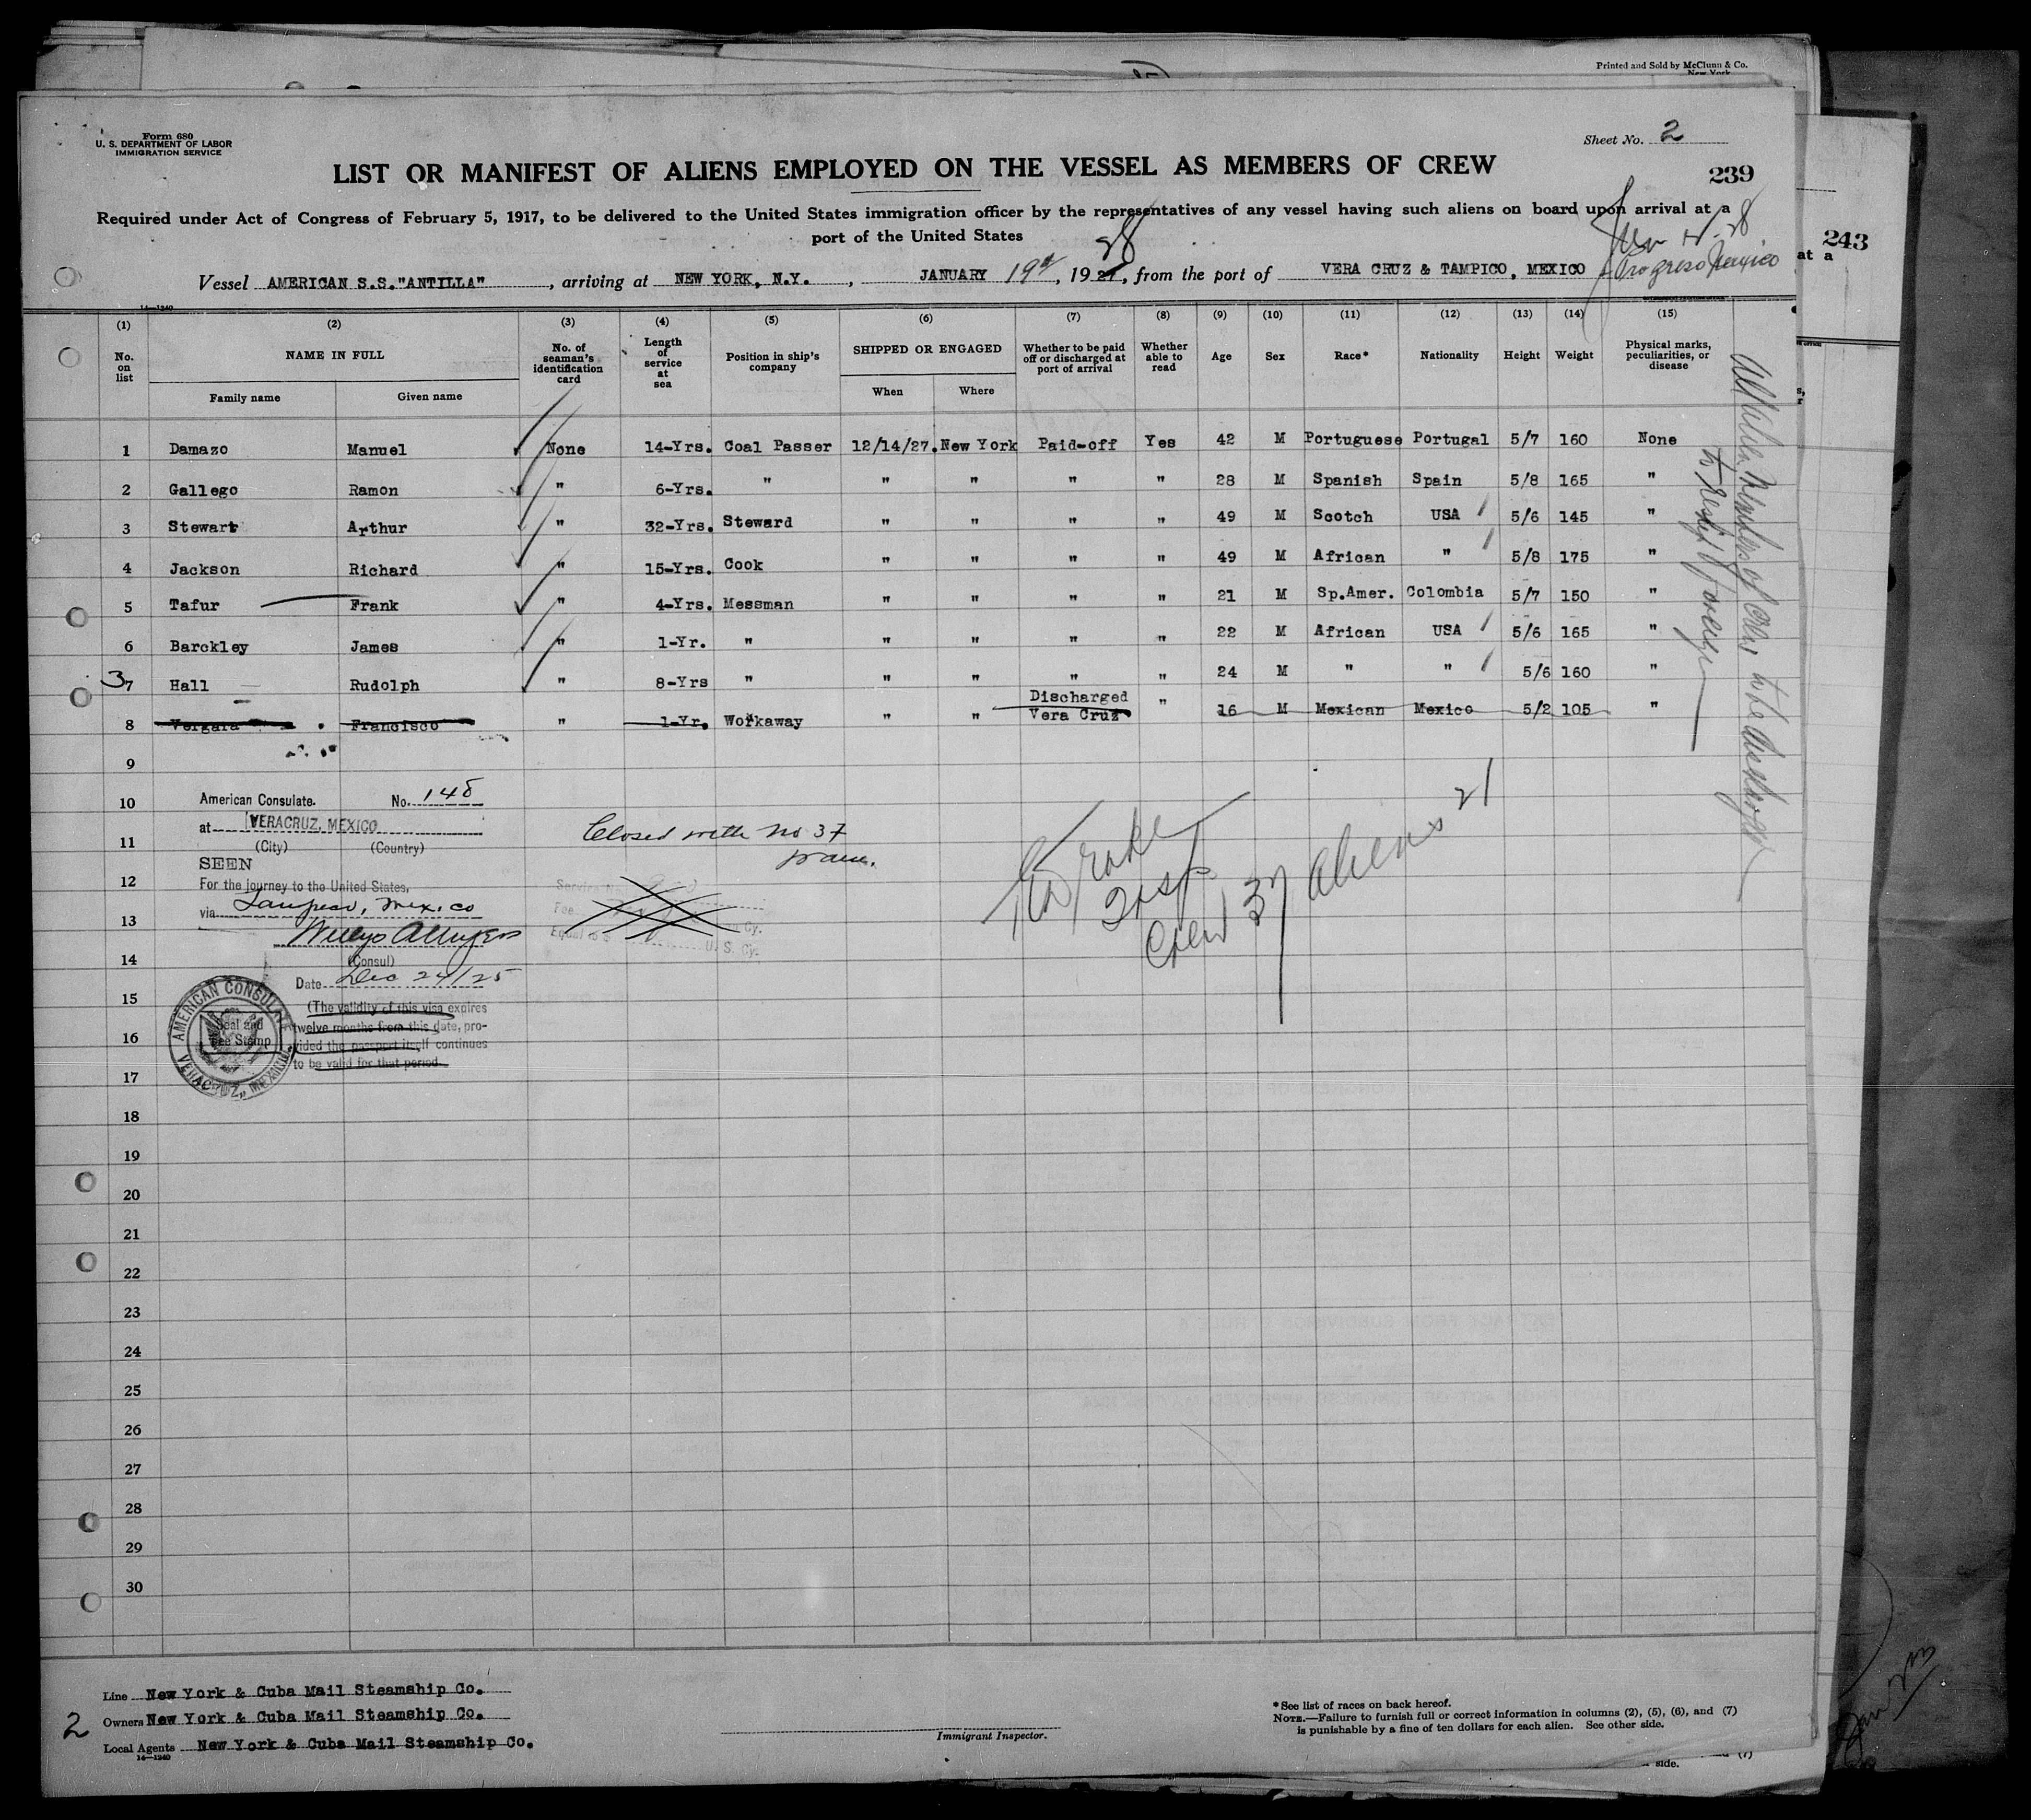 Printed and Sold by McClunn & Co.
New York
Form 680
U. S. DEPARTMENT OF LABOR
IMMIGRATION SERVICE
Sheet No. 2
LIST OR MANIFEST OF ALIENS EMPLOYED ON THE VESSEL AS MEMBERS OF CREW
239
Required under Act of Congress of February 5, 1917, to be delivered to the United States immigration officer by the representatives of any vessel having such aliens on board upon arrival at a
port of the United States
243
at a
28
Progreso Mexico
Vessel AMERICAN S.S."ANTILLA" , arriving at NEW YORK, N.Y. , JANUARY 19th , 1928, from the port of VERA CRUZ & TAMPICO, MEXICO
14—1240
(1) (2) (3) (4) (5) (6) (7) (8) (9) (10) (11) (12) (13) (14) (15)
No. on list NAME IN FULL No. of seaman's identification card Length of service at sea Position in ship's company SHIPPED OR ENGAGED Whether to be paid off or discharged at port of arrival Whether able to read Age Sex Race* Nationality Height Weight Physical marks, peculiarities, or disease
Family name Given name When Where
1 Damazo Manuel None 14-Yrs. Coal Passer 12/14/27. New York Paid-off Yes 42 M Portuguese Portugal 5/7 160 None
2 Gallego Ramon " 6-Yrs. " " " " " 28 M Spanish Spain 5/8 165 "
3 Stewart Arthur " 32-Yrs. Steward " " " " 49 M Scotch USA 5/6 145 "
4 Jackson Richard " 15-Yrs. Cook " " " " 49 M African " 5/8 175 "
5 Tafur Frank " 4-Yrs. Messman " " " " 21 M Sp.Amer. Colombia 5/7 150 "
6 Barckley James " 1-Yr. " " " " " 22 M African USA 5/6 165 "
3
7 Hall Rudolph " 8-Yrs " " " " " 24 M " " 5/6 160 "
8 Vergara Francisco " 1-Yr. Workaway " " Discharged Vera Cruz " 16 M Mexican Mexico 5/2 105 "
All Alien Members of Crew to be discharged
to reship foreign
9
10
11
12
13
14
15
16
17
18
19
20
21
22
23
24
25
26
27
28
29
30
American Consulate. No. 148
at VERACRUZ, MEXICO
(City) (Country)
SEEN
For the journey to the United States,
via Tampico, Mexico
(Consul)
Date Dec 24/25
(The validity of this visa expires
twelve months from this date, pro-
vided the passport itself continues
to be valid for that period.
AMERICAN CONSULATE
VERACRUZ, MEXICO.
Seal and
Fee Stamp
Closed with No 37
Service No.
Fee
Equal to $ U. S. Cy.
Crew 37 Aliens 21
Line New York & Cuba Mail Steamship Co.
Owners New York & Cuba Mail Steamship Co.
Local Agents New York & Cuba Mail Steamship Co.
14—1240
2
Immigrant Inspector.
*See list of races on back hereof.
NOTE.—Failure to furnish full or correct information in columns (2), (5), (6), and (7)
is punishable by a fine of ten dollars for each alien. See other side.
side.